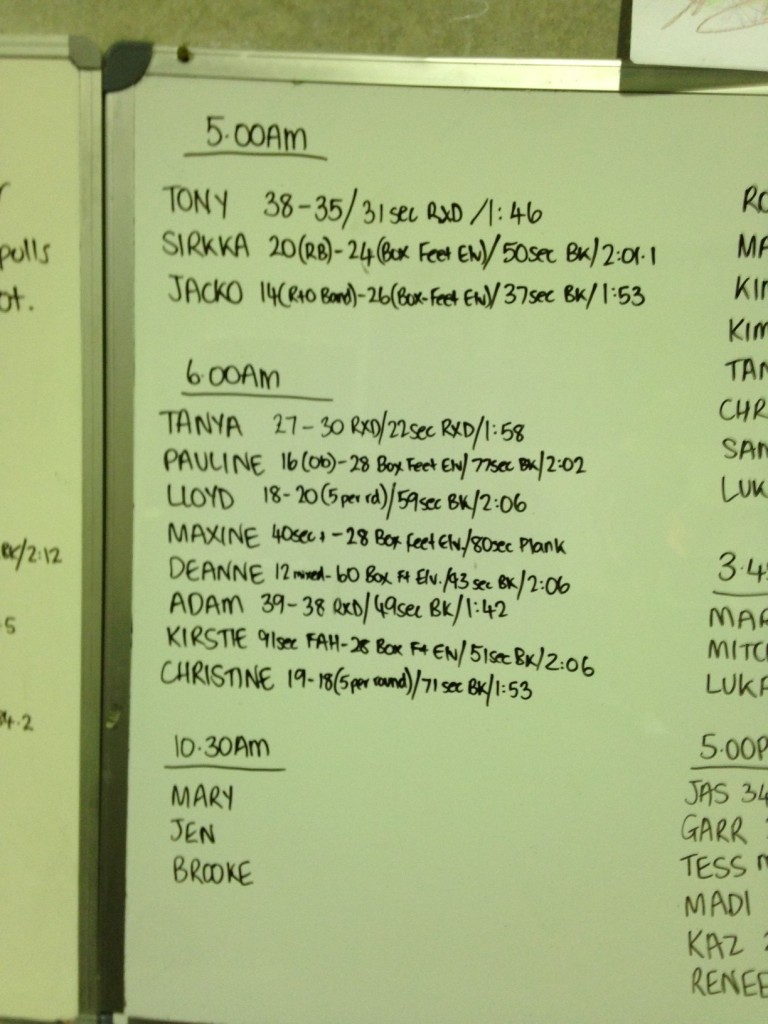 pulls
ot.
BK/2:12
5
4.2
5:00AM
TONY 38-35/31sec RXD /1:46
SIRKKA 20(RB)-24(Box Feet Elv)/50sec BK/2:01.1
JACKO 14(R+O Band)-26(Box-Feet Elv)/37sec BK/1:53
6:00AM
TANYA 27-30 RXD/22sec RXD/1:58
PAULINE 16(Ob)-28 Box Feet Elv/77sec BK/2:02
LLOYD 18-20(5 per rd)/59sec BK/2:06
MAXINE 40sec -28 Box Feet Elv/80sec Plank
DEANNE 12 mixed-60 Box Ft Elv./43 sec BK/2:06
ADAM 39-38 RXD/49sec BK/1:42
KIRSTIE 91sec FAH-28 Box Ft Elv/51sec BK/2:06
CHRISTINE 19-18(5 per round)/71 sec BK/1:53
10.30AM
MARY
JEN
BROOKE
RO
MA
KIM
KIM
TAN
CHR
SAM
LUK
3.4
MAR
MITC
LUKA
5:00P
JAS 34
GARR
TESS
MADI
KAZ 2
RENEE